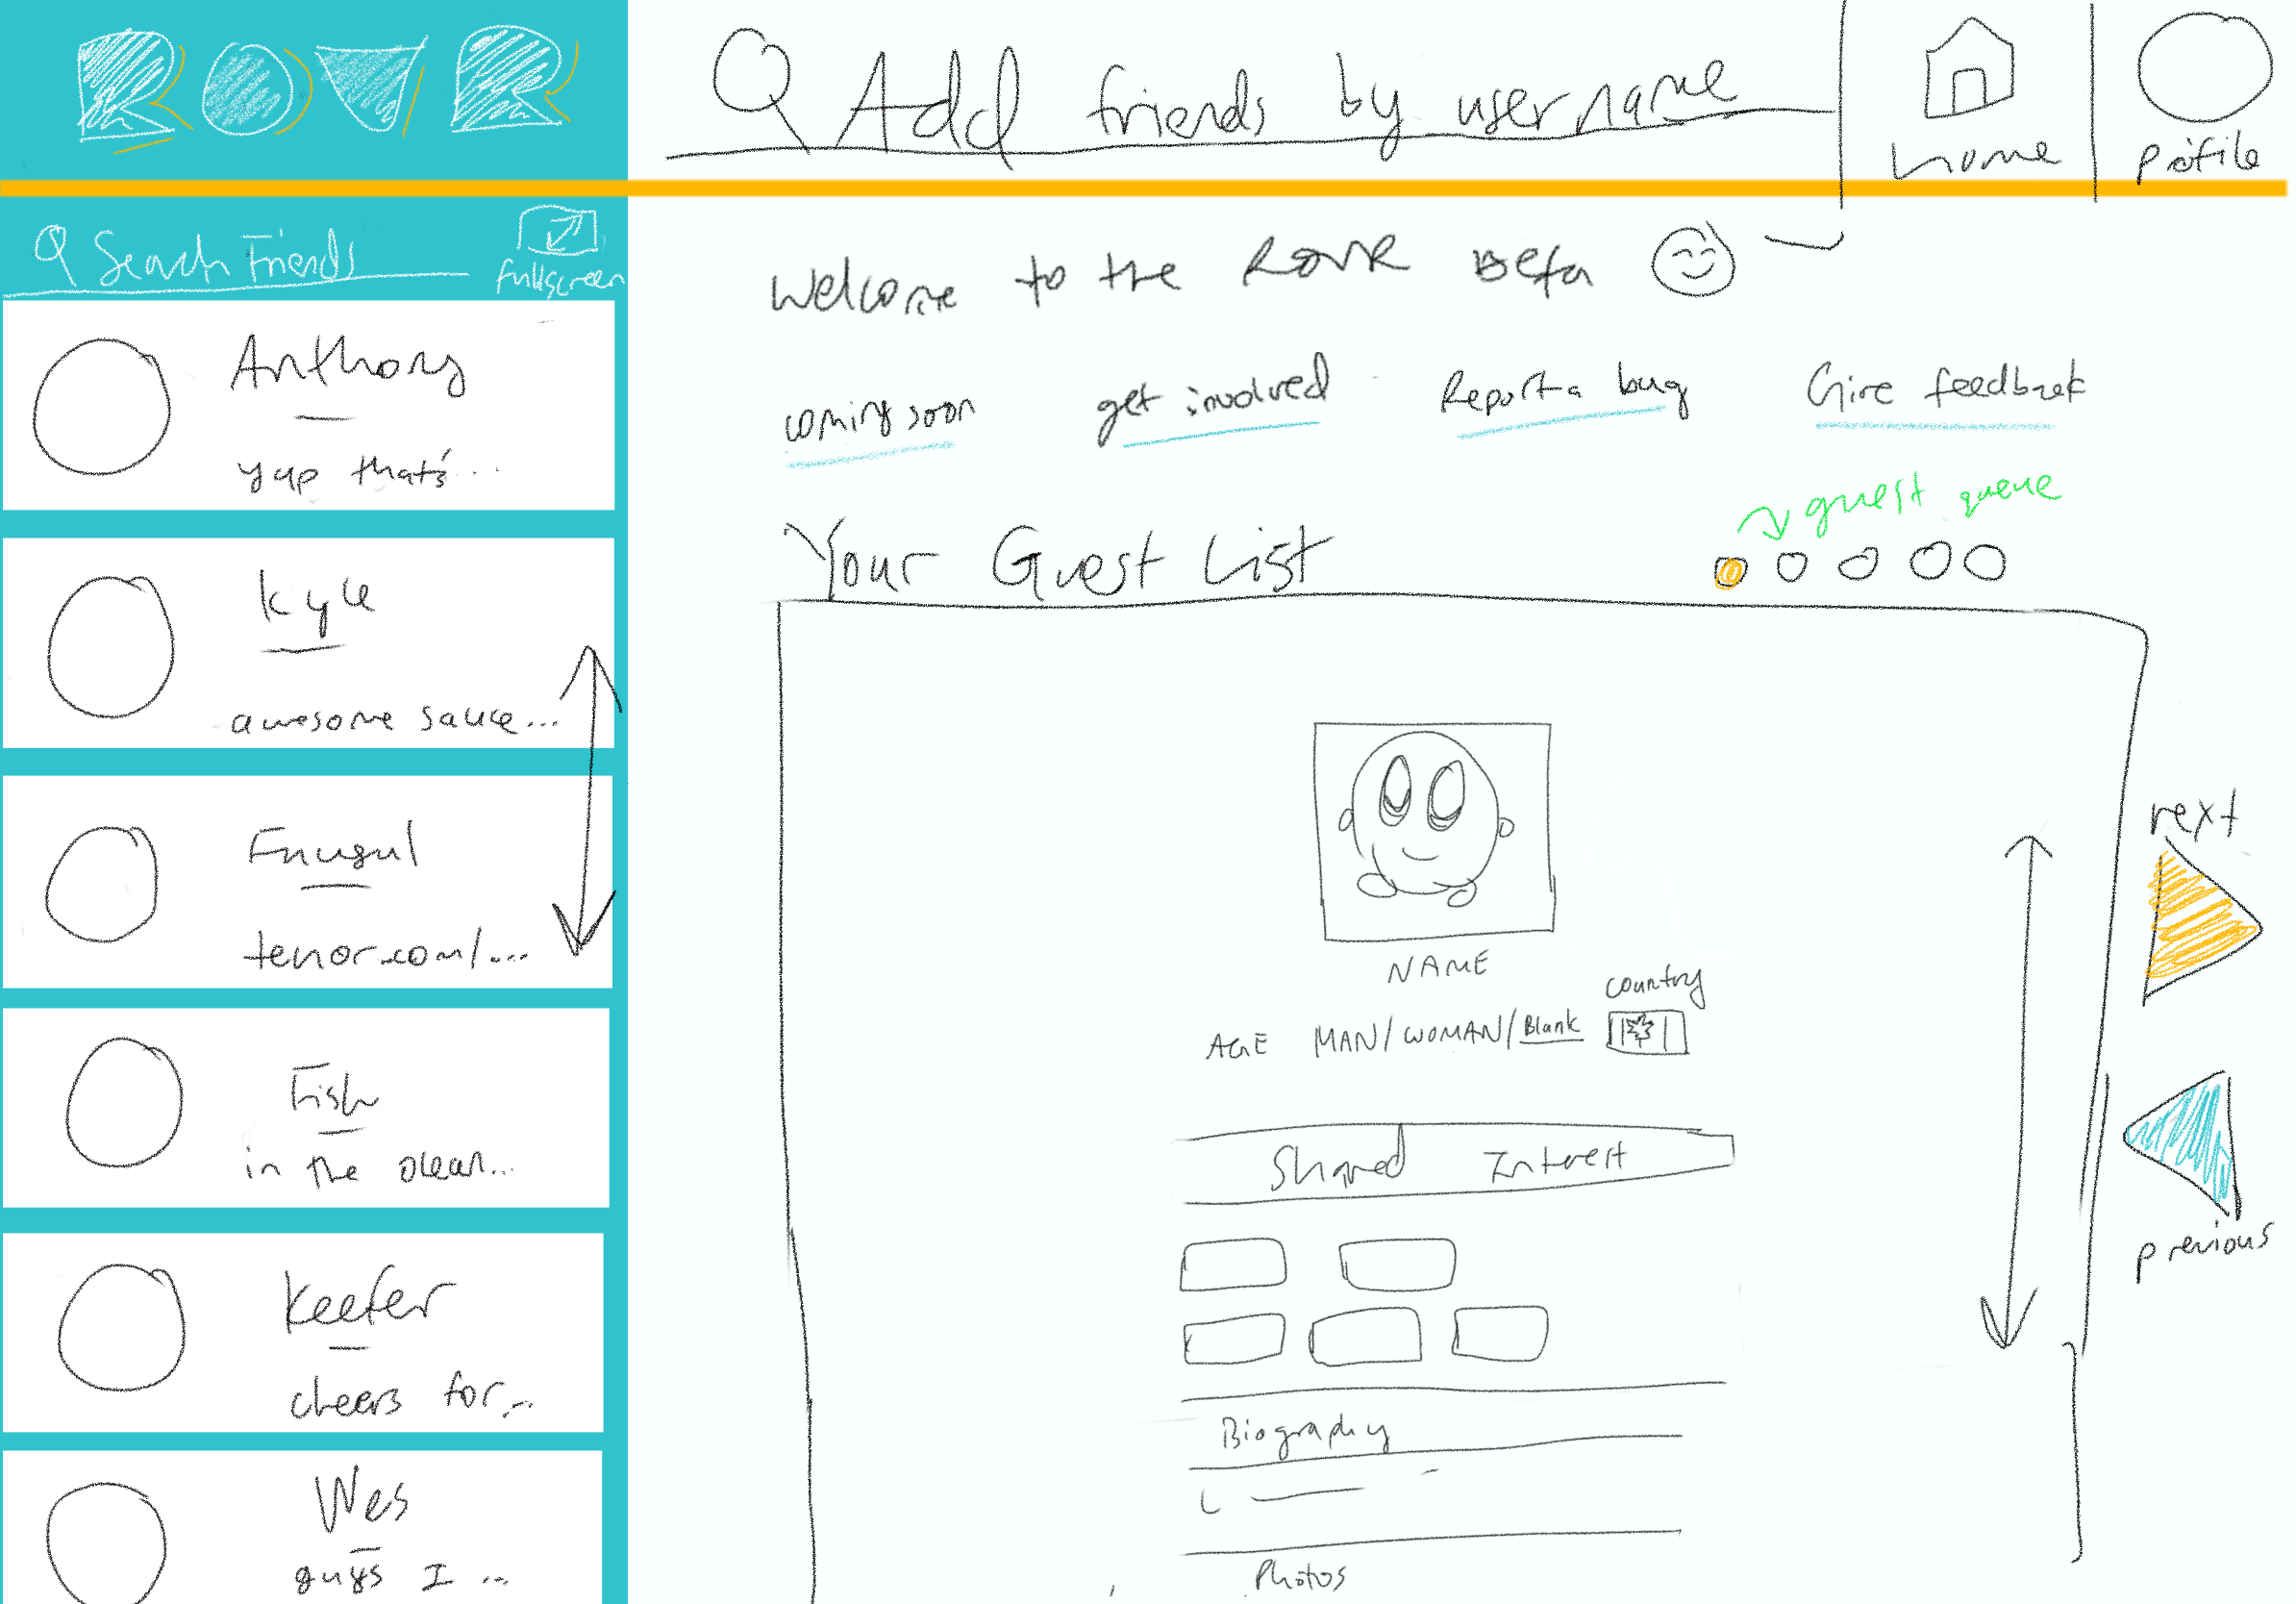 ROVR
Add friends by username
home
profile
Search Friends
fullscreen
Anthony
yap that's...
Kyle
awesome sauce...
Frugal
tenor.com/...
Fish
in the ocean...
Keefer
cheers for...
Wes
guys I ...
Welcome to the ROVR Beta
coming soon
get involved
Report a bug
Give feedback
guest queue
Your Guest List
NAME
country
AGE MAN/WOMAN/Blank
Shared Interest
Biography
Photos
next
previous